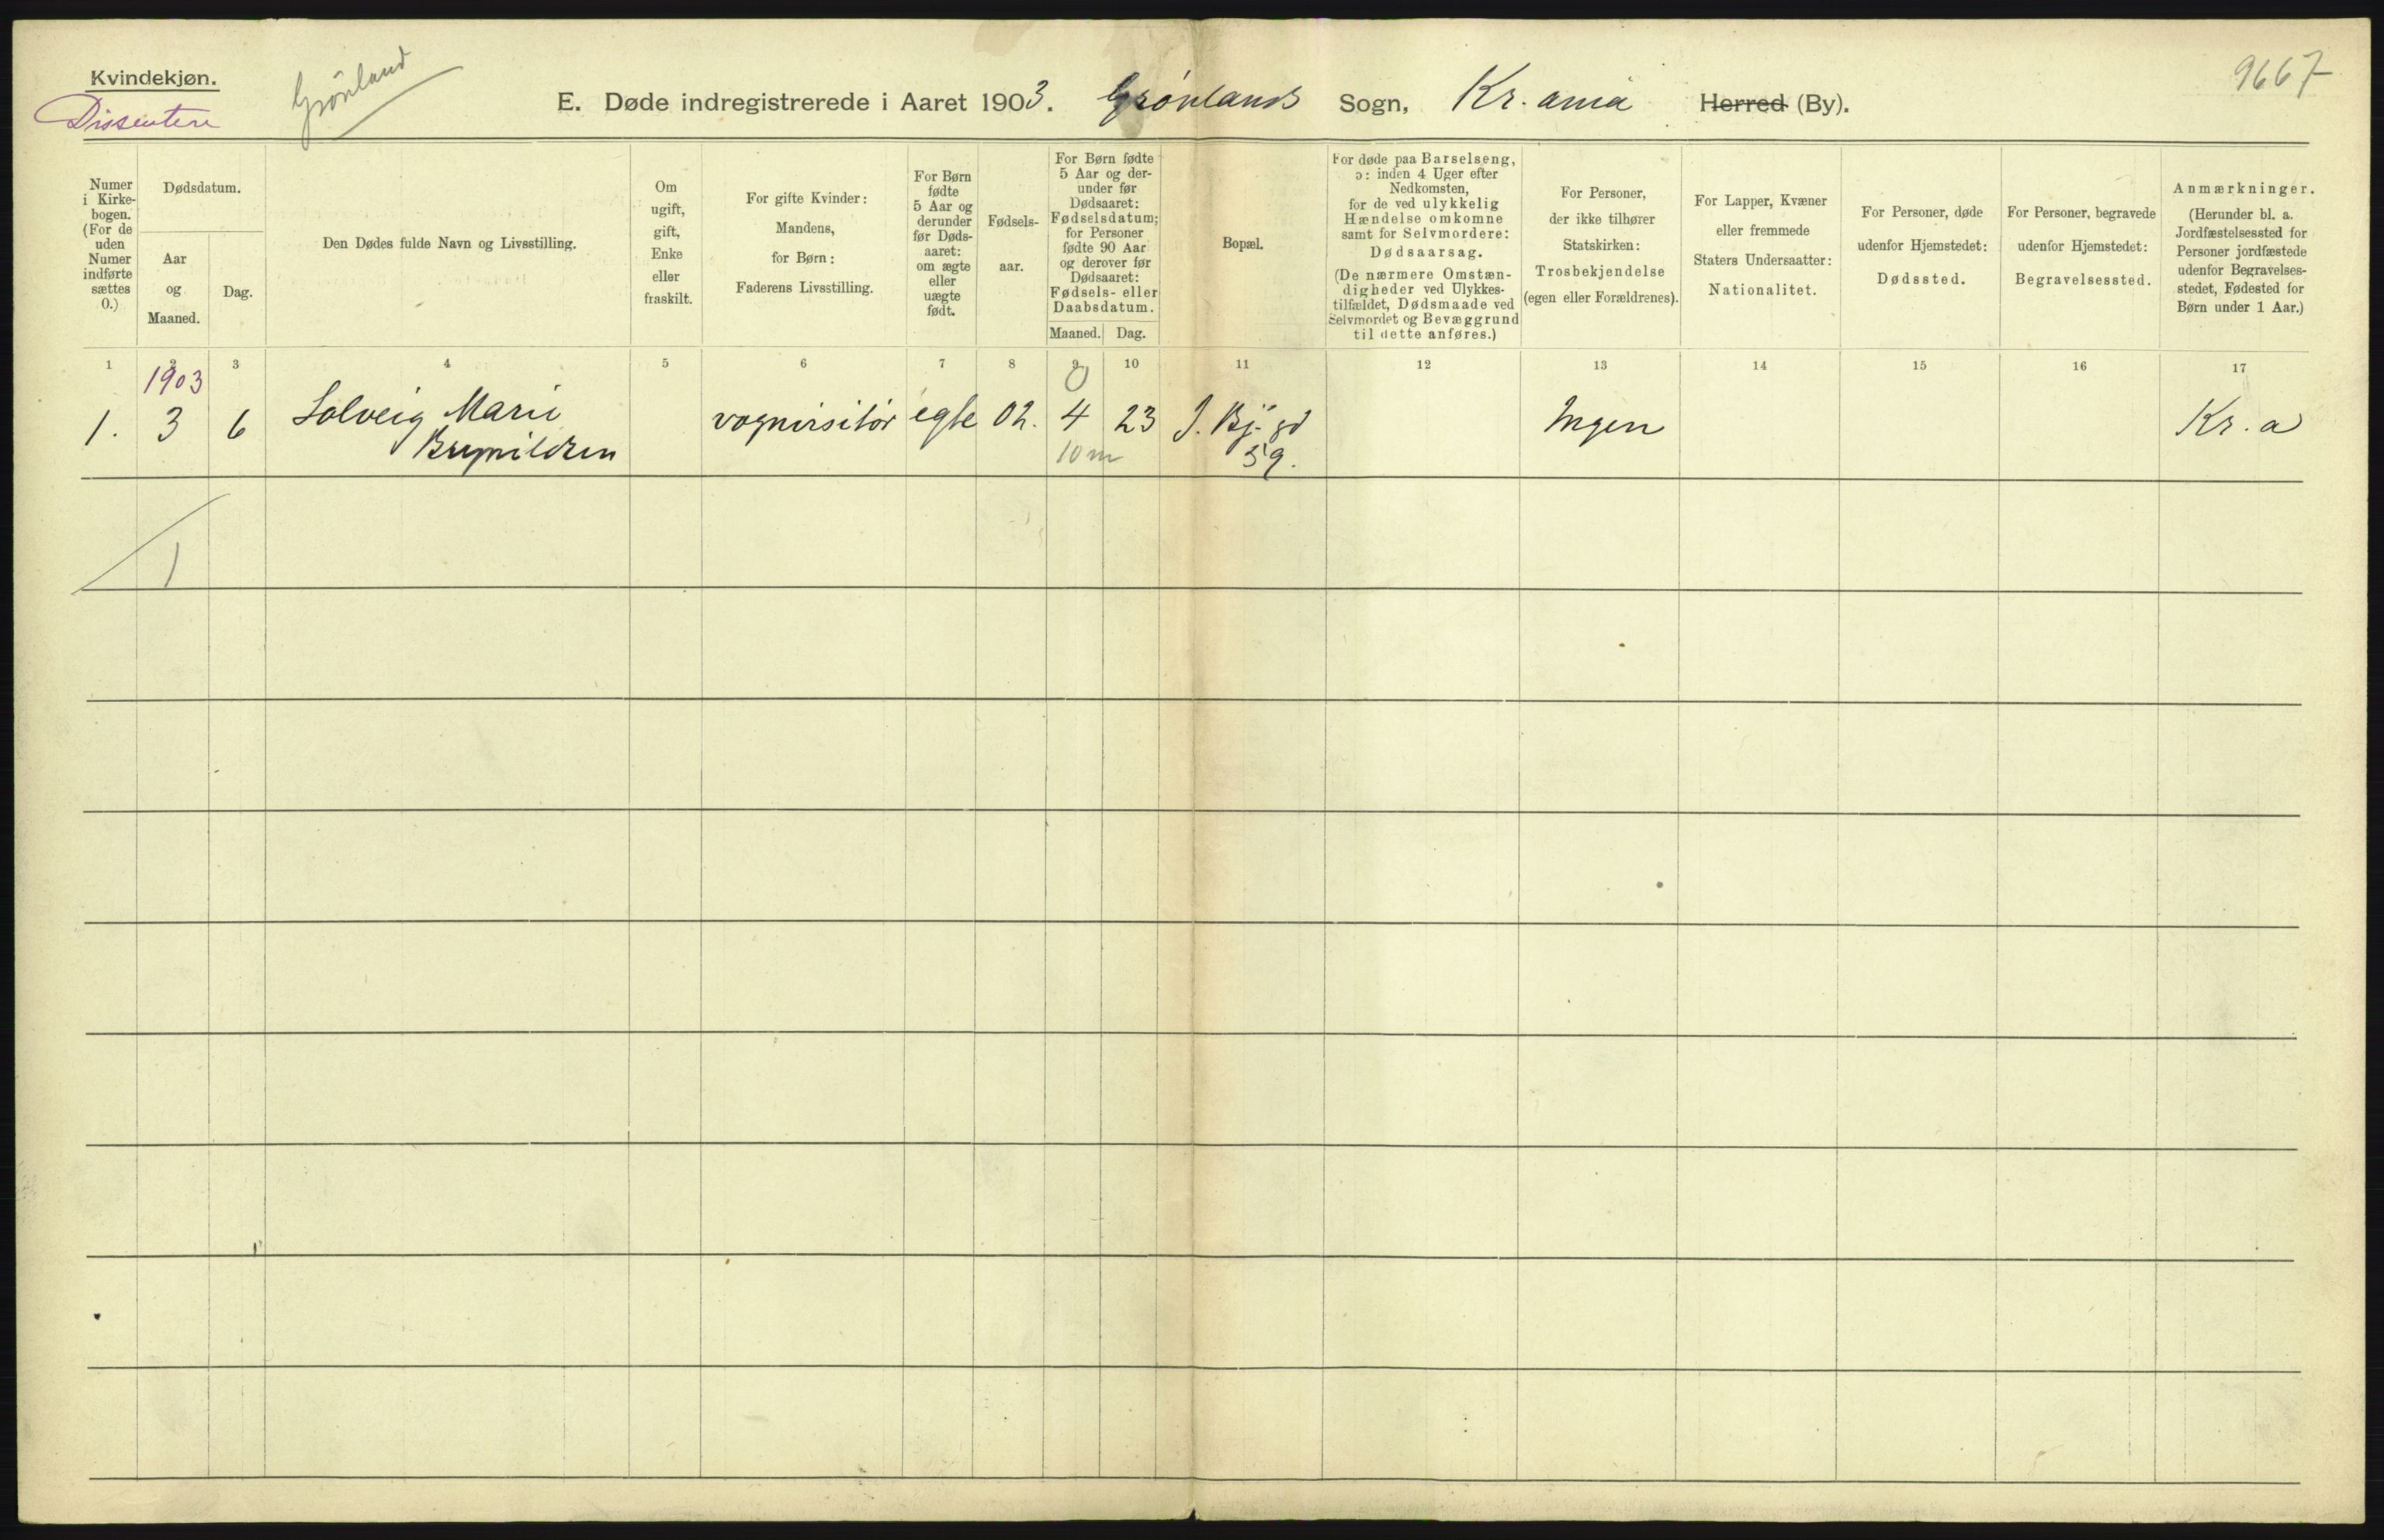 Kvindekjøn.
Dissentere
Grönland
E. Døde indregistrerede i Aaret 1903. Grönlands Sogn, Kr.ania Herred (By).
9667
Numer
i Kirke-
bogen.
(For de
uden
Numer
indførte
sættes
0.)
Dødsdatum.
Aar
og
Maaned.
Dag.
Den Dødes fulde Navn og Livsstilling.
Om
ugift,
gift,
Enke
eller
fraskilt.
For gifte Kvinder:
Mandens,
for Børn:
Faderens Livsstilling.
For Børn
fødte
5 Aar og
derunder
før Døds-
aaret:
om ægte
eller
uægte
født.
Fødsels-
aar.
For Børn fødte
5 Aar og der-
under før
Dødsaaret:
Fødselsdatum;
for Personer
fødte 90 Aar
og derover før
Dødsaaret:
Fødsels- eller
Daabsdatum.
Maaned. Dag.
Bopæl.
For døde paa Barselseng,
ɔ: inden 4 Uger efter
Nedkomsten,
for de ved ulykkelig
Hændelse omkomne
samt for Selvmordere:
Dødsaarsag.
(De nærmere Omstæn-
digheder ved Ulykkes-
tilfældet, Dødsmaade ved
Selvmordet og Bevæggrund
til dette anføres.)
For Personer,
der ikke tilhører
Statskirken:
Trosbekjendelse
(egen eller Forældrenes).
For Lapper, Kvæner
eller fremmede
Staters Undersaatter:
Nationalitet.
For Personer, døde
udenfor Hjemstedet:
Dødssted.
For Personer, begravede
udenfor Hjemstedet:
Begravelsessted.
Anmærkninger.
(Herunder bl. a.
Jordfæstelsessted for
Personer jordfæstede
udenfor Begravelses-
stedet, Fødested for
Børn under 1 Aar.)
1 2 3 4 5 6 7 8 9 10 11 12 13 14 15 16 17
1903 0
1. 3 6 Solveig Marie vognvisitör egte 02. 4 23 J. Bj. gd Ingen Kr.a
Brynildsen 10 m 59.
1